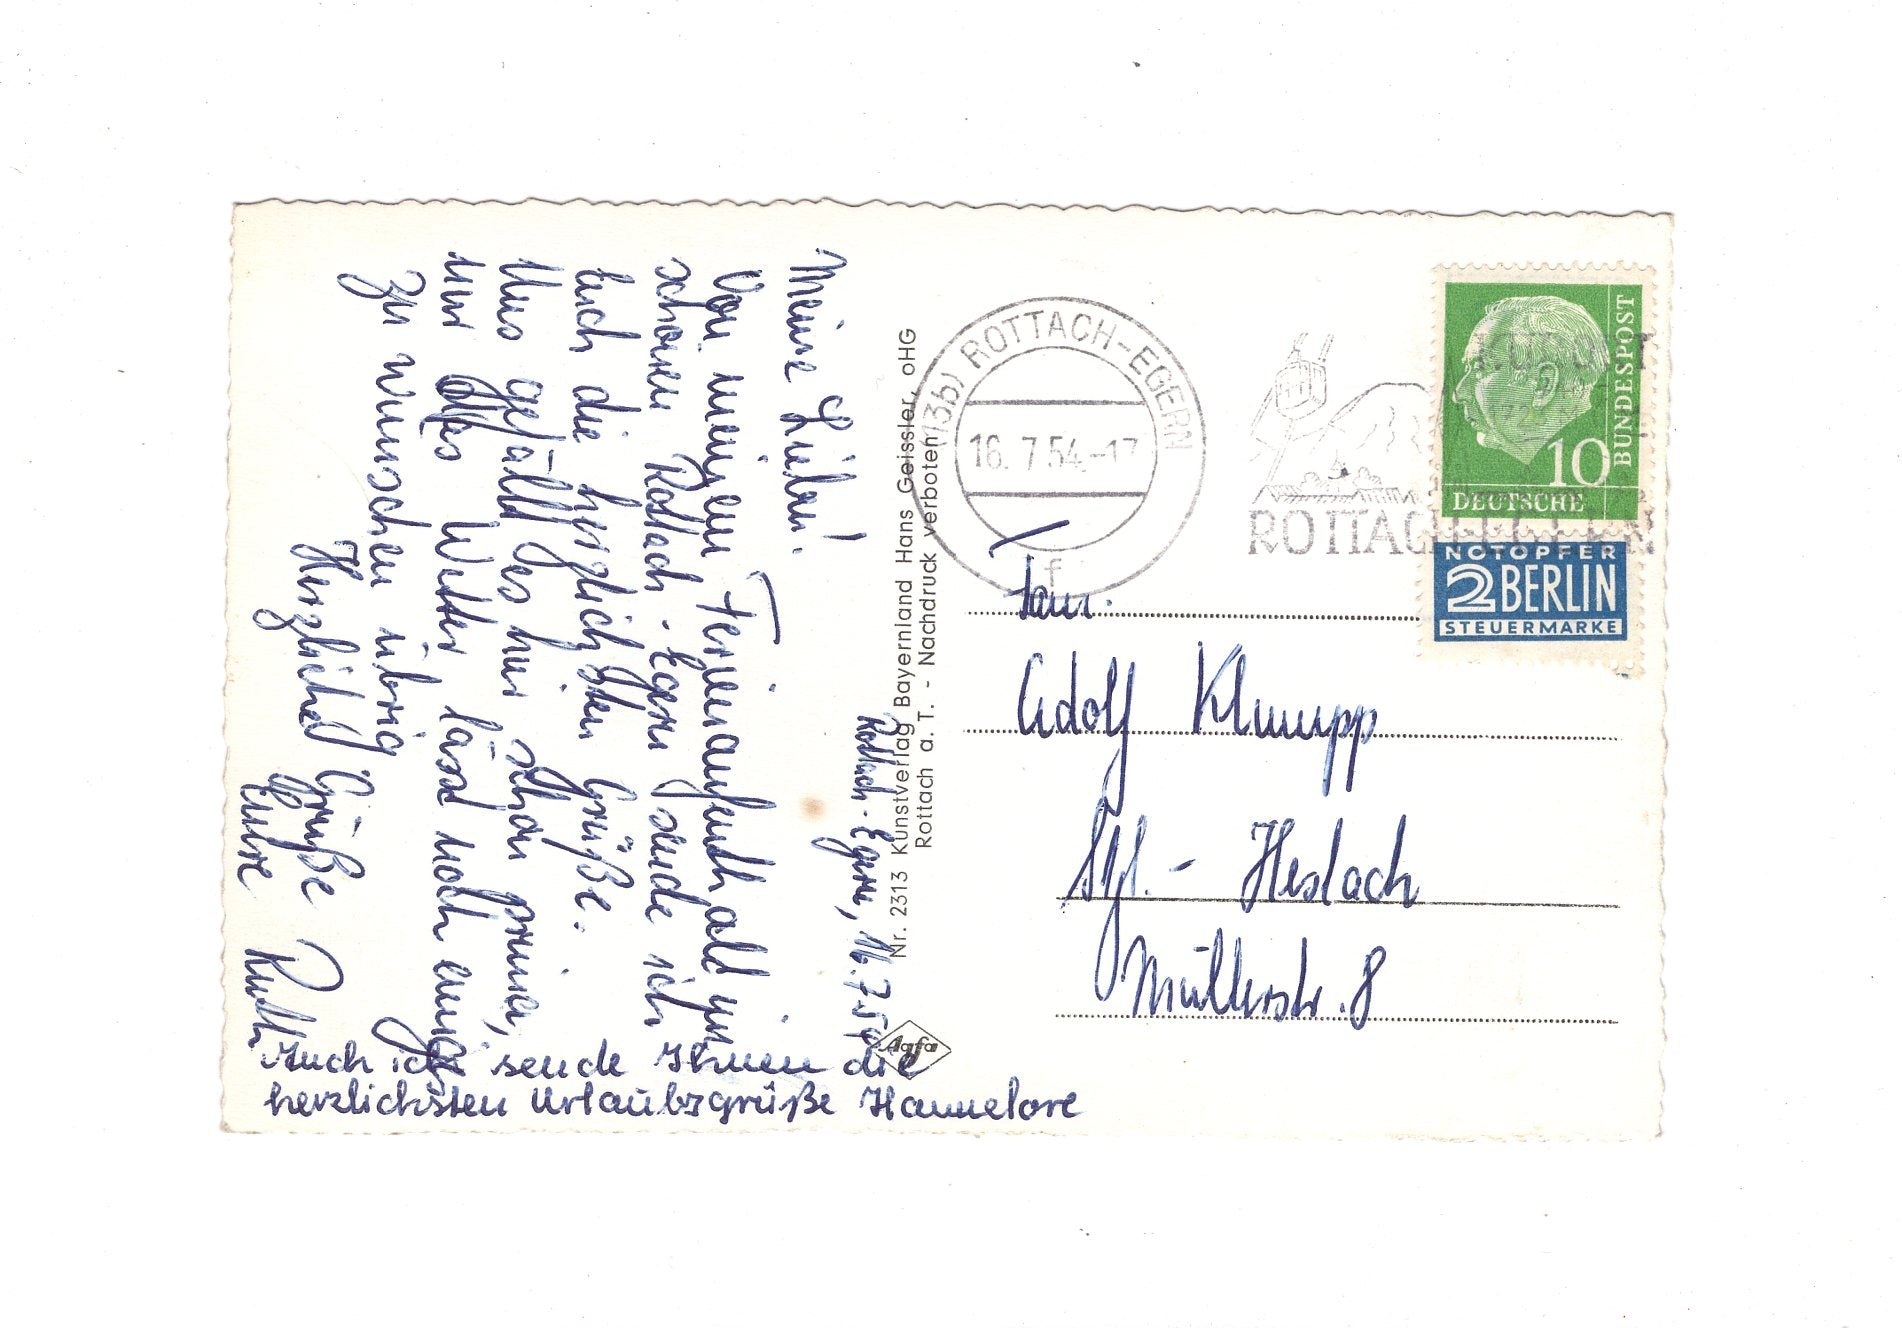 Rottach-Egern, 16.7.54
Meine Lieben!
Von meinem Ferienaufenthalt im
schönen Rottach-Egern sende ich
Euch die herzlichsten Grüße.
Uns gefällt es hier schon prima,
nur das Wetter lässt noch einiges
zu wünschen übrig
Herzliche Grüße
Eure Ruth
Auch ich sende Ihnen die
herzlichsten Urlaubsgrüße Hannelore
Nr. 2313 Kunstverlag Bayernland Hans Geissler, oHG
Rottach a. T. - Nachdruck verboten
Agfa
(13b) ROTTACH-EGERN
16.7.54-17
f
ROTTACH-EGERN
DEUTSCHE
BUNDESPOST
10
NOTOPFER
2 BERLIN
STEUERMARKE
Fam.
Adolf Klumpp
Stgt.- Heslach
Müllerstr. 8